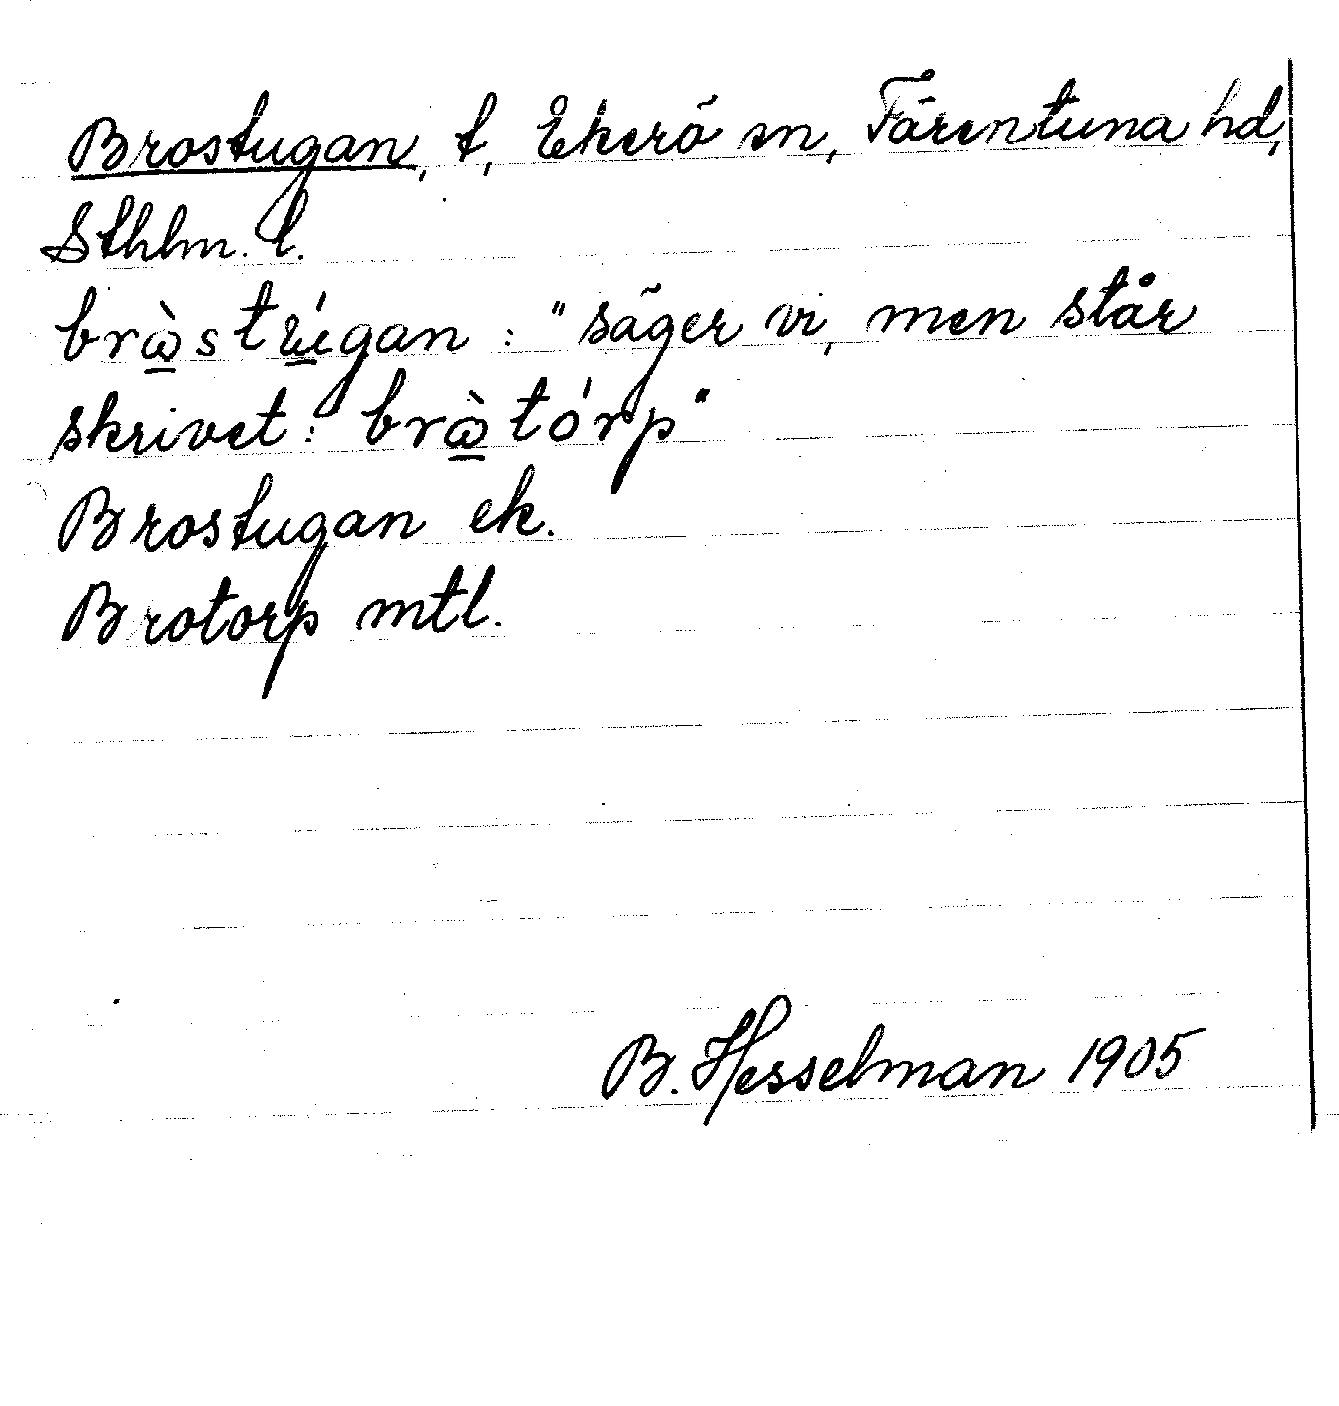 Brostugan, t, Ekerö sn, Färentuna hd,
Sthlm. l.
brὼ̲stú̲gan : "säger vi, men står
skrivet: brὼ̲tórp"
Brostugan ek.
Brotorp mtl.
B. Hesselman 1905